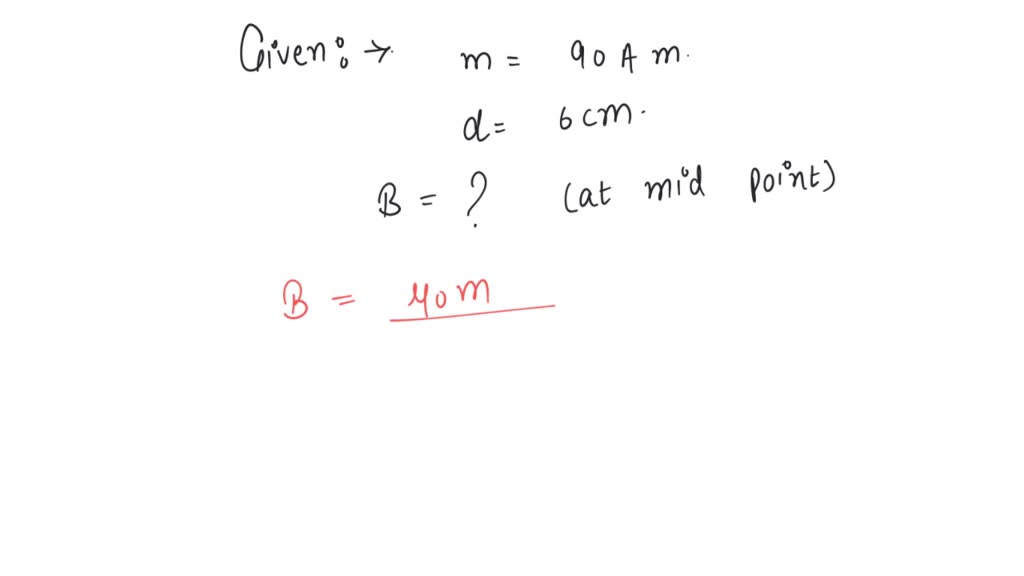 Given: → m = 90 A m.
d = 6 cm.
B = ? (at mid point)
B = μ0 m